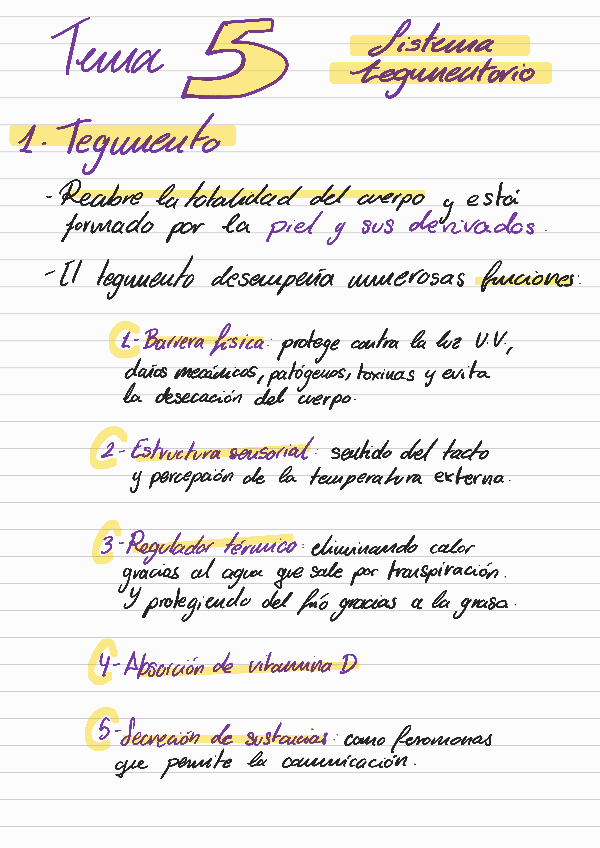 Tema 5 Sistema
tegumentario
1. Tegumento
- Recubre la totalidad del cuerpo y está
formado por la piel y sus derivados.
- El tegumento desempeña numerosas funciones:
1- Barrera física: protege contra la luz U.V.,
daños mecánicos, patógenos, toxinas y evita
la desecación del cuerpo.
2- Estructura sensorial: sentido del tacto
y percepción de la temperatura externa.
3- Regulador térmico: eliminando calor
gracias al agua que sale por transpiración.
Y protegiendo del frío gracias a la grasa.
4- Absorción de vitamina D
5- Secreción de sustancias: como feromonas
que permite la comunicación.